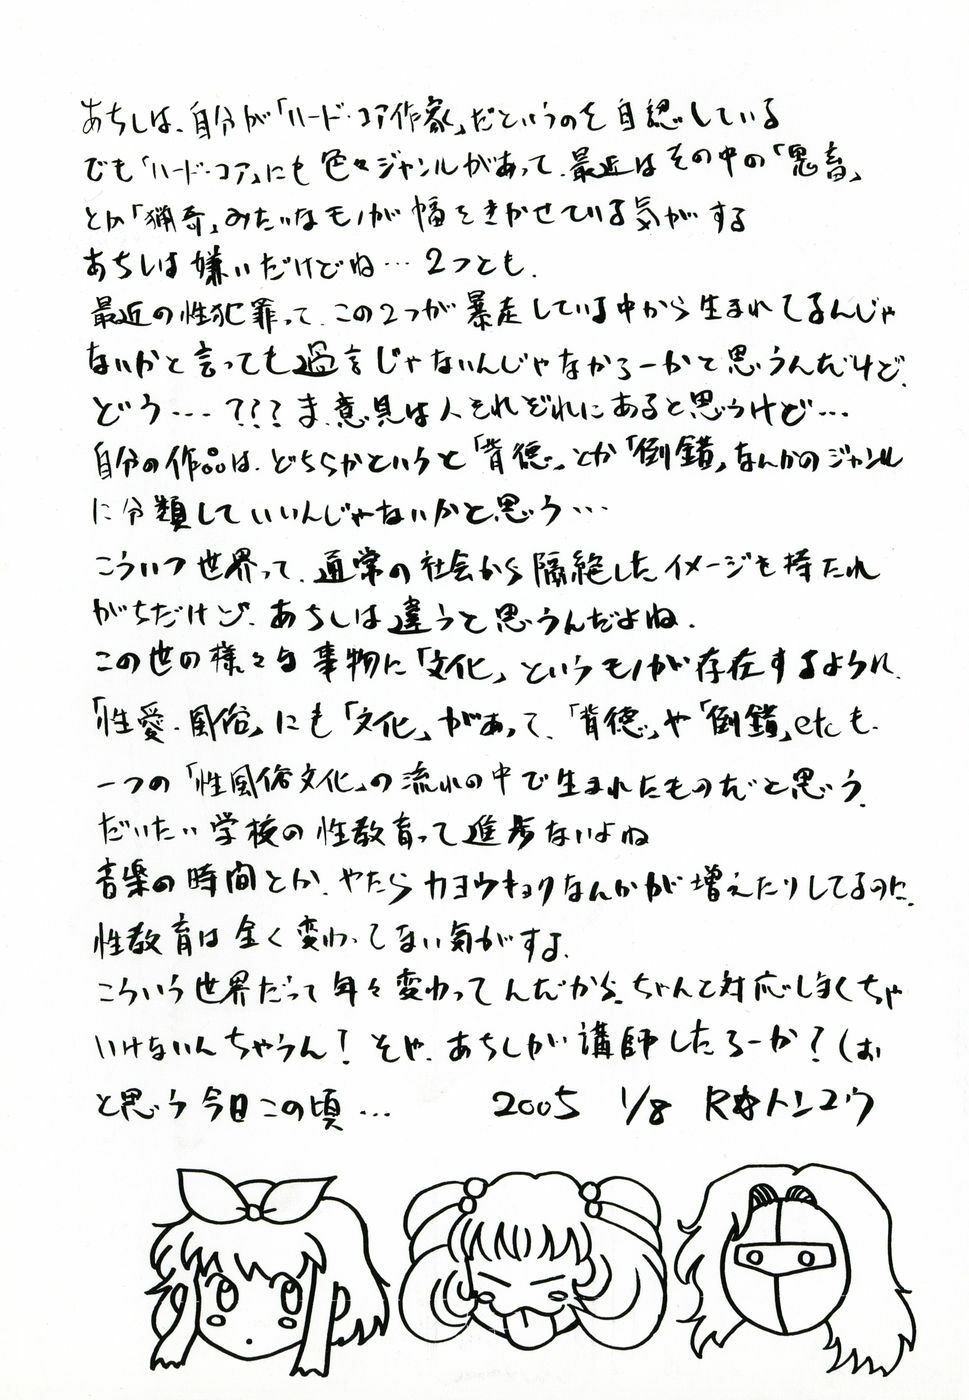 あちしは、自分が「ハード・コア作家」だというのを自認している
でも「ハード・コア」にも色々ジャンルがあって、最近はその中の「鬼畜」
とか「猟奇」みたいなモノが幅をきかせている気がする
あちしは嫌いだけどね…2つとも、
最近の性犯罪って、この2つが暴走している中から生まれてるんじゃ
ないかと言っても過言じゃないんじゃなかろーかと思うんだけど、
どう…???ま、意見は人それぞれにあると思うけど…
自分の作品は、どちらかというと「背徳」とか「倒錯」なんかのジャンル
に分類していいんじゃないかと思う…
こういつ世界って、通常の社会から隔絶したイメージを持たれ
がちだけど、あちしは違うと思うんだよね、
この世の様々な事物に「文化」というモノが存在するように、
「性愛・風俗」にも「文化」があって、「背徳」や「倒錯」etcも、
一つの「性風俗文化」の流れの中で生まれたものだと思う、
だいたい学校の性教育って進歩ないよね
音楽の時間とか、やたらカヨウキョクなんかが増えたりしてるのに、
性教育は全く変わってない気がする、
こういう世界だって年々変わってんだから、ちゃんと対応しまくちゃ
いけないんちゃうん!そや、あちしが講師したろーか?(お
と思う今日この頃… 2005 1/8 R‪✡トンユウ